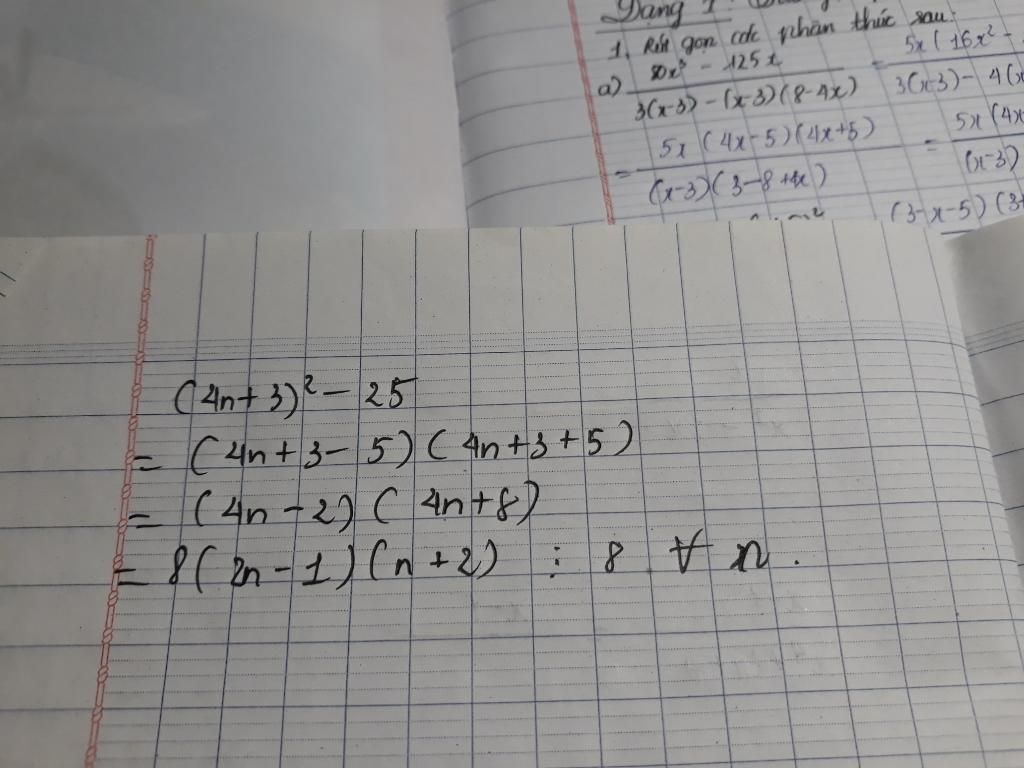 Dạng 1
1. Rút gọn các phân thức sau:
a) 80x³ - 125x / 3(x-3) - (x-3)(8-4x) = 5x(16x² - / 3(x-3) - 4(x
= 5x(4x-5)(4x+5) / (x-3)(3-8+4x) = 5x(4x / (x-3)
(3-x-5)(3+
(4n+3)² - 25
= (4n+3-5)(4n+3+5)
= (4n-2)(4n+8)
= 8(2n-1)(n+2) ⋮ 8 ∀ n.